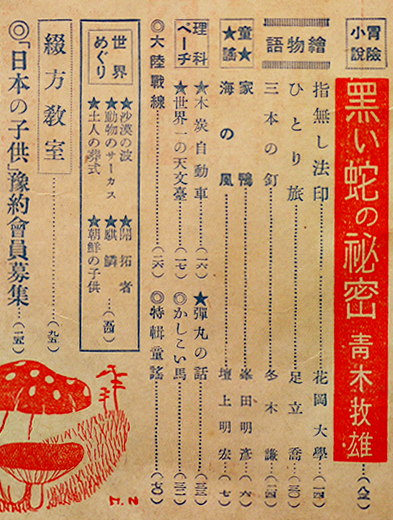 冒險小說
黑い蛇の祕密 青木牧雄…(八二)
繪物語
指無し法印……花岡大學…(一四)
ひとり旅……足立喬…(三〇)
三本の釘……冬木謙…(二四)
童★謠★
家鴨……峯田明彥…(六)
海の風……壇上明宏…(七)
理科ページ
★木炭自動車……(一六)
★彈丸の話……(三三)
★世界一の天文臺……(一七)
◎かしこい馬……(三二)
◎大陸戰線……(二六)
◎特輯童謠……(七〇)
世界めぐり
★沙漠の波
★開拓者
★動物のサーカス
★麒麟
★土人の葬式
★朝鮮の子供
綴方敎室……(九五)
◎「日本の子供」豫約會員募集…
M.N